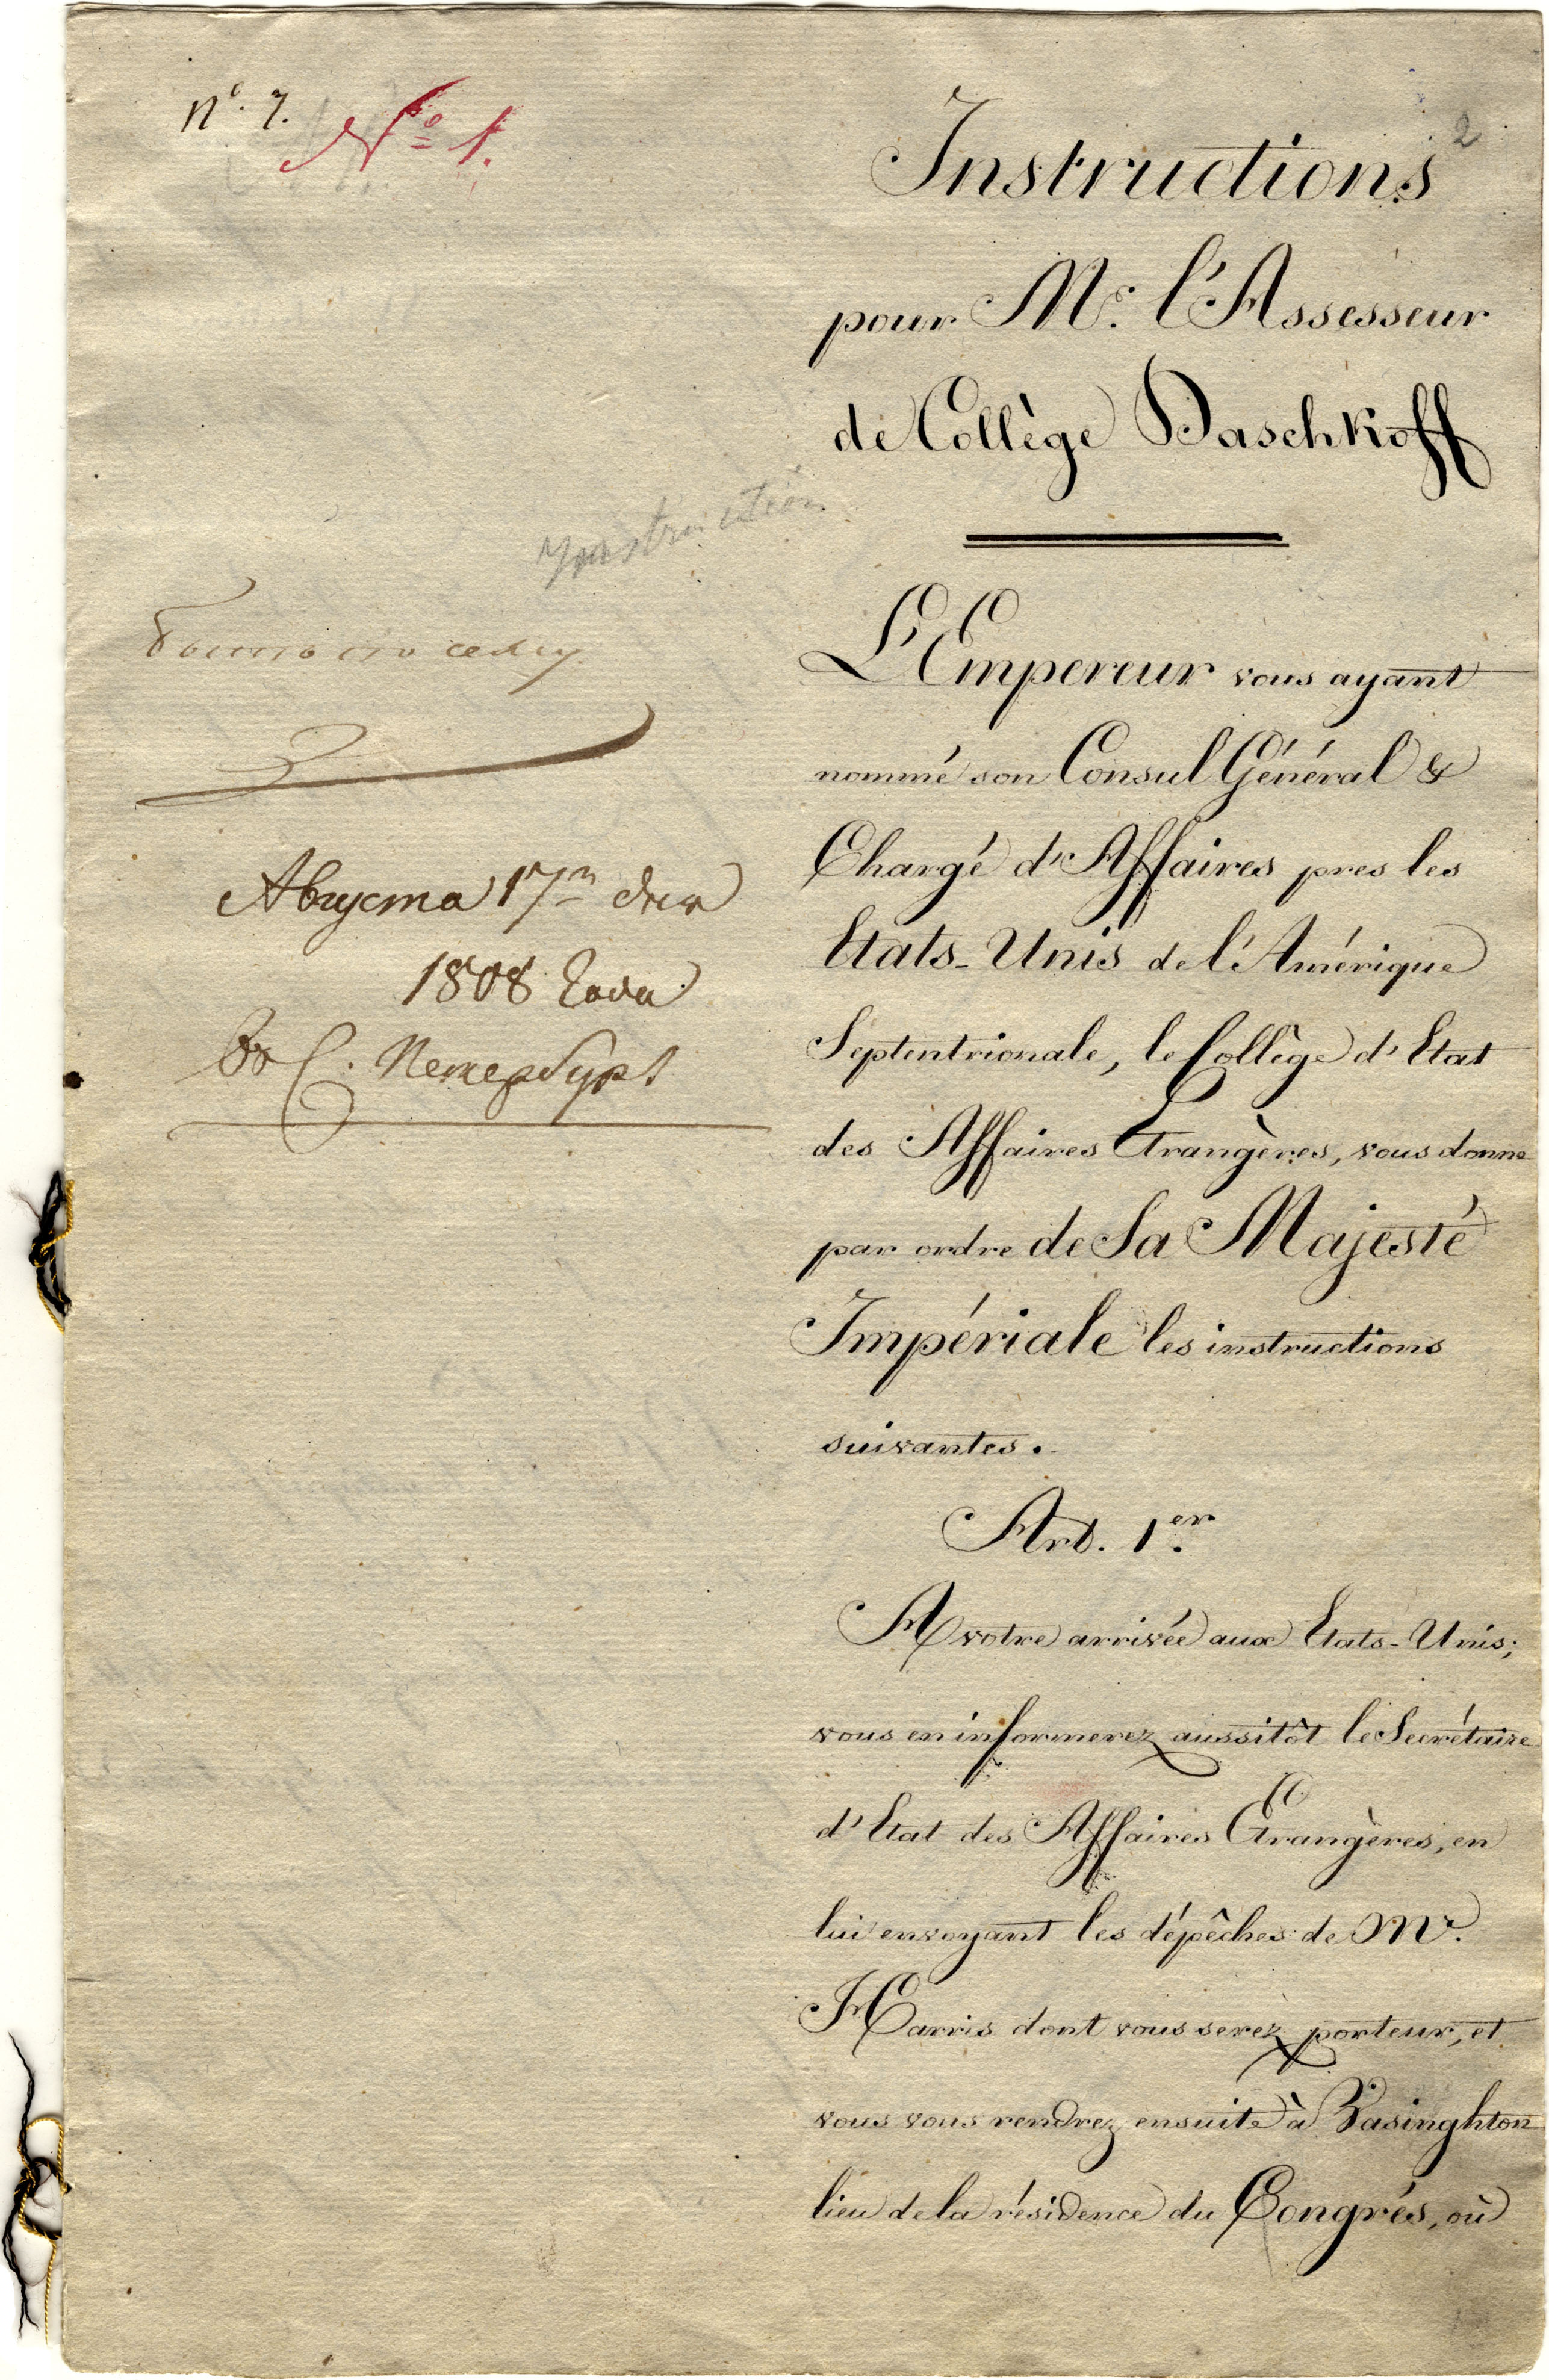 nº. 7.
Nº 1.
2
Instructions
pour Mr. l'Assesseur
de Collège Daschkoff
Instruction
Быть по сему.
Августа 17го дня
1808 Года
Въ С. Петербургѣ
L'Empereur vous ayant
nommé son Consul Général &
Chargé d'Affaires pres les
Etats-Unis de l'Amérique
Septentrionale, le Collège d'Etat
des Affaires Etrangères, vous donne
par ordre de Sa Majesté
Impériale les instructions
suivantes.
Art. 1.er
A votre arrivée aux Etats-Unis,
vous en informerez aussitôt le Secrétaire
d'Etat des Affaires Etrangères, en
lui envoyant les dépêches de Mr.
Harris dont vous serez porteur, et
vous vous rendrez ensuite à Vasinghton
lieu de la résidence du Congrés, où